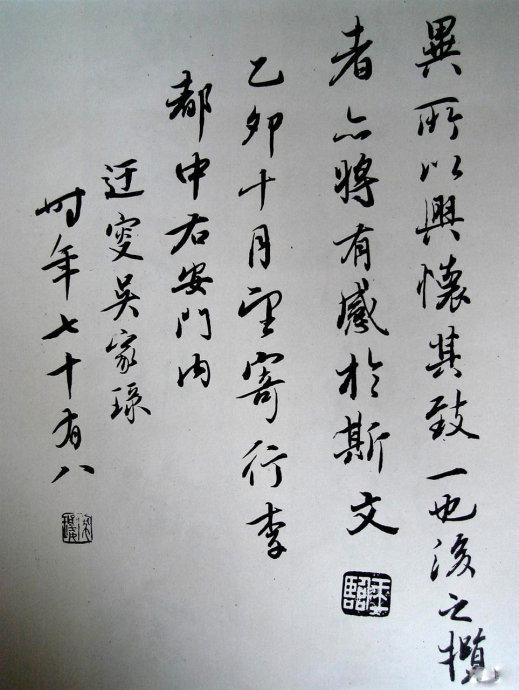 異所以興懷其致一也後之攬
者亦將有感於斯文
乙卯十月望寄行李
都中右安門内
迂叟吳家琭
時年七十有八